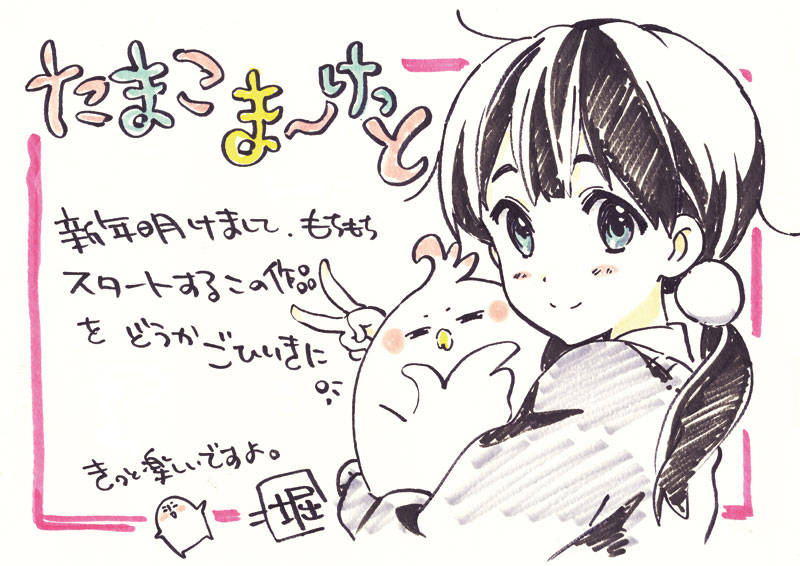 たまこま〜けっと
新年明けまして、もちもち
スタートするこの作品
を どうか ごひいきに
きっと楽しいですよ。
堀